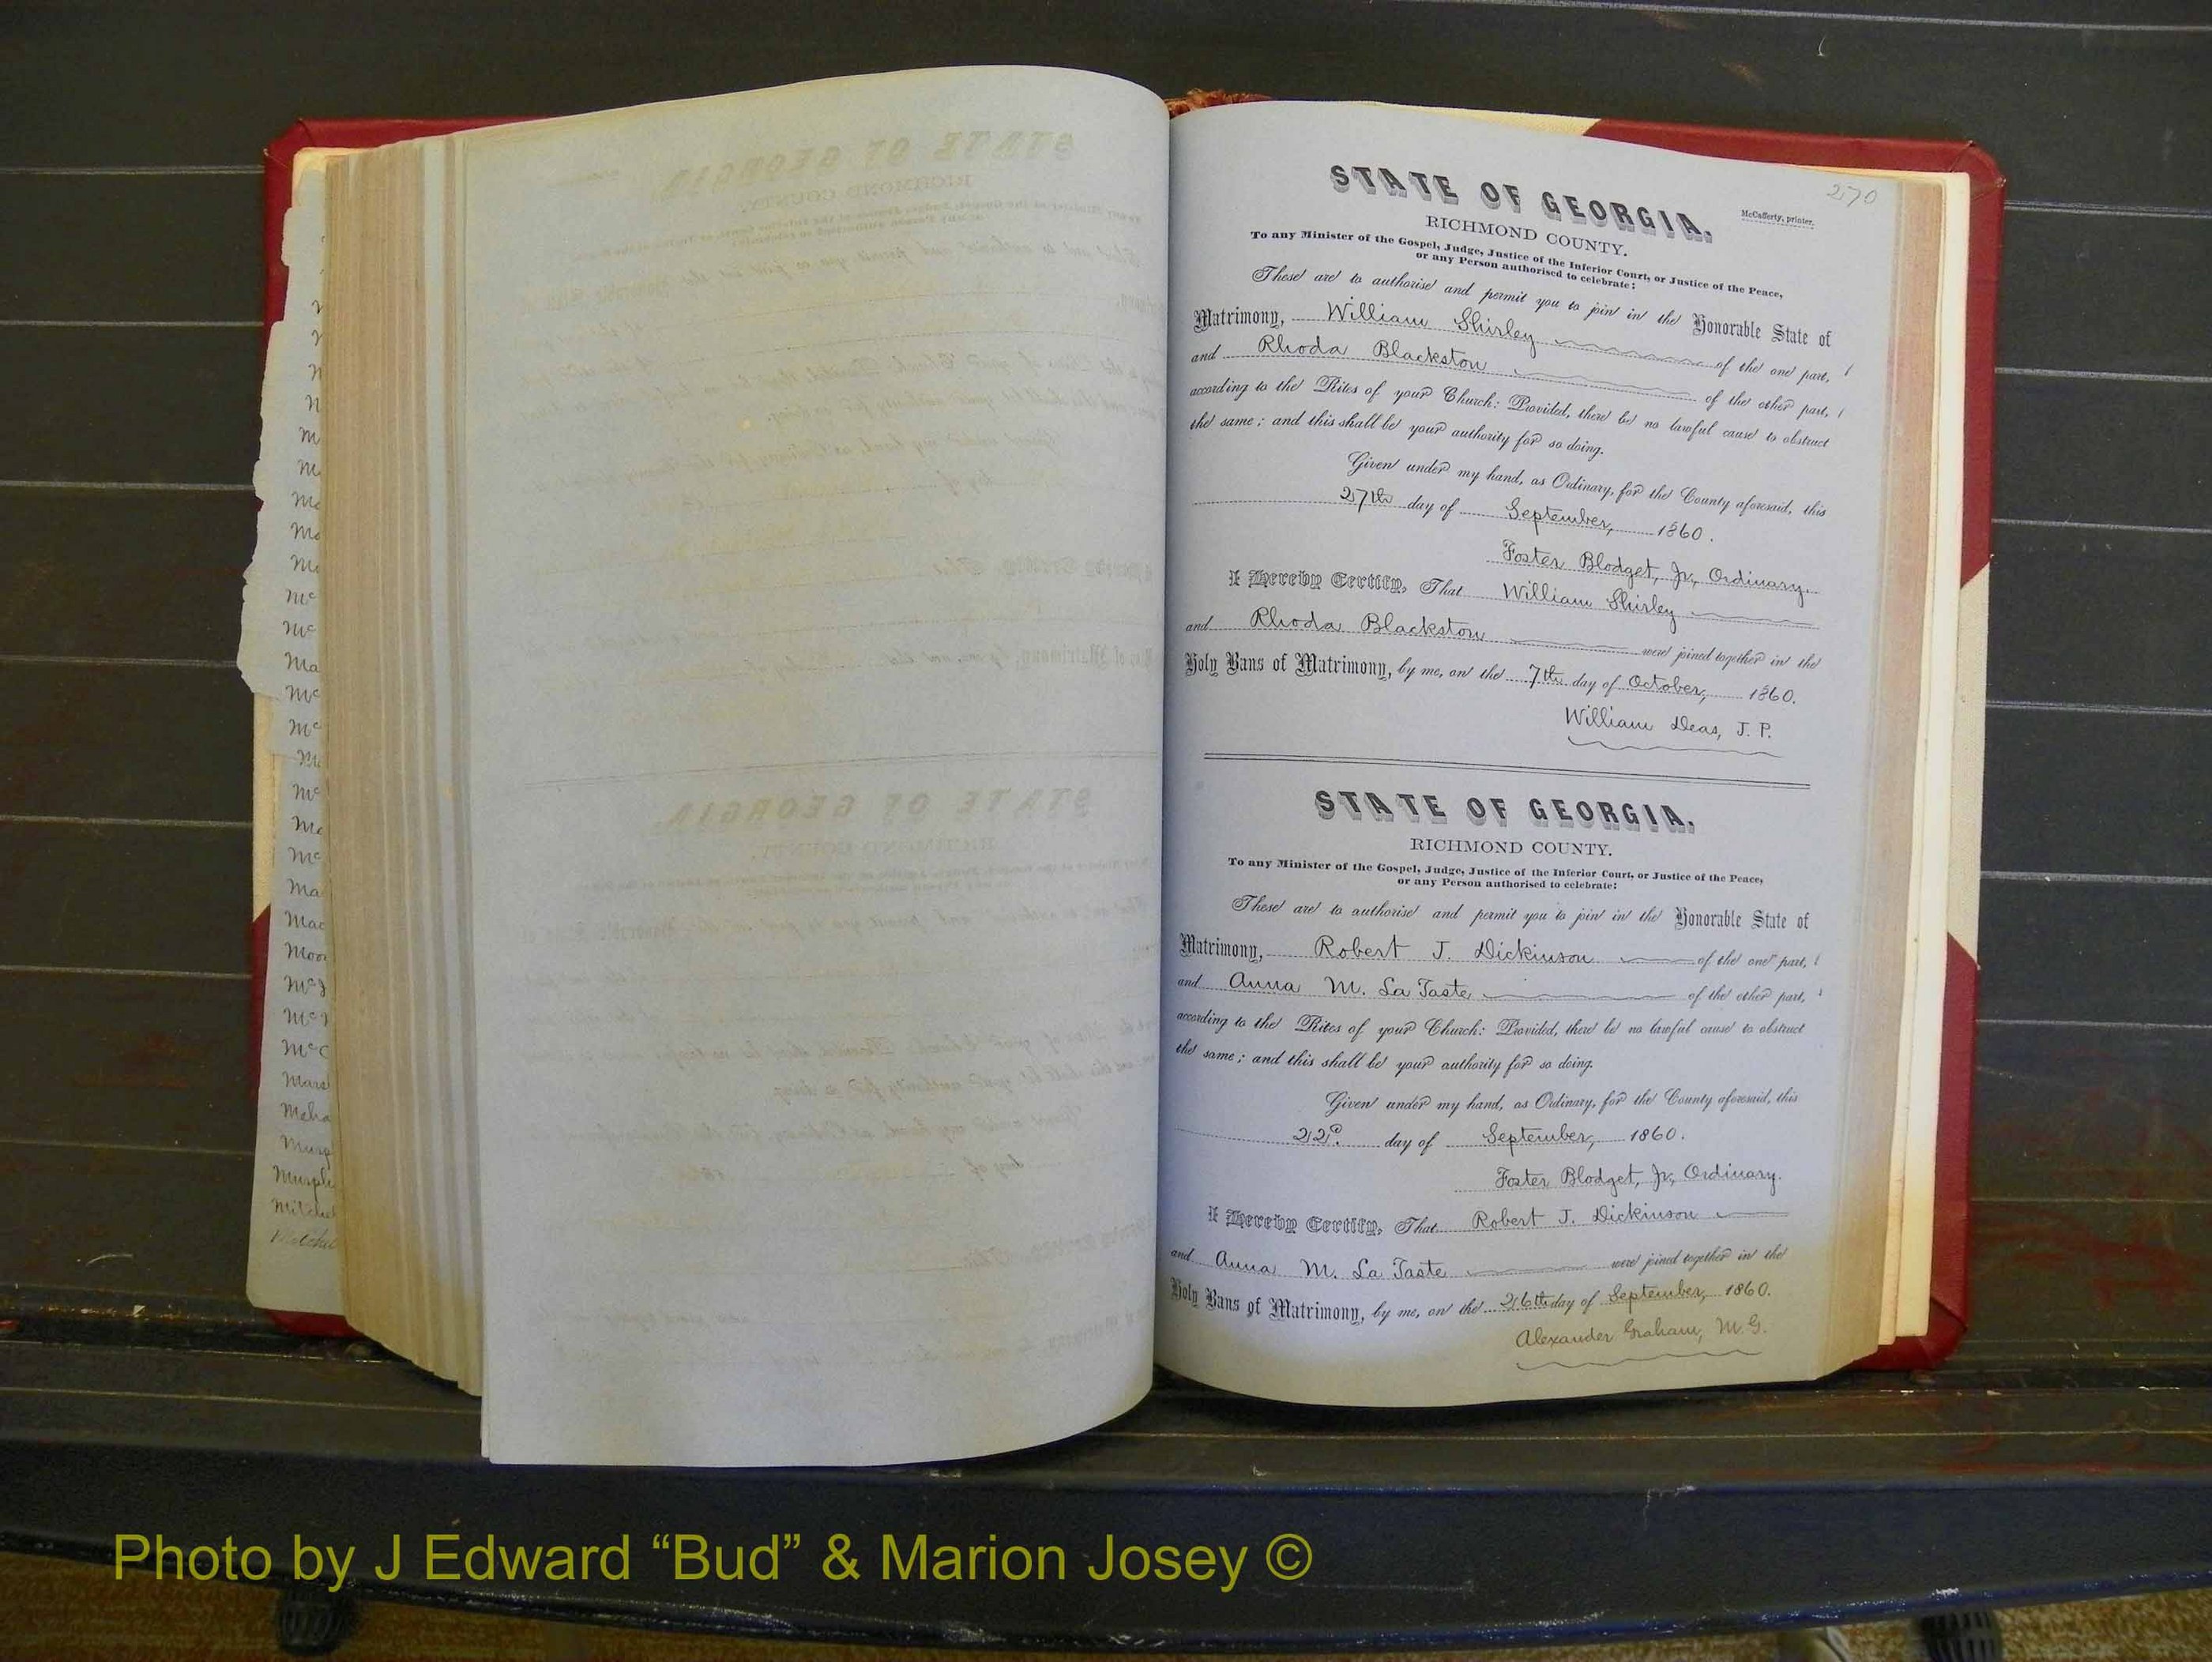 270
STATE OF GEORGIA.
McCafferty, printer.
RICHMOND COUNTY.
To any Minister of the Gospel, Judge, Justice of the Inferior Court, or Justice of the Peace,
or any Person authorised to celebrate:
These are to authorise and permit you to join in the Honorable State of
Matrimony, William Shirley of the one part,
and Rhoda Blackston of the other part,
according to the Rites of your Church: Provided, there be no lawful cause to obstruct
the same; and this shall be your authority for so doing.
Given under my hand, as Ordinary, for the County aforesaid, this
27th day of September, 1860.
Foster Blodget, Jr, Ordinary.
I Hereby Certify, That William Shirley
and Rhoda Blackston were joined together in the
Holy Bans of Matrimony, by me, on the 7th day of October, 1860.
William Deas, J. P.
STATE OF GEORGIA.
RICHMOND COUNTY.
To any Minister of the Gospel, Judge, Justice of the Inferior Court, or Justice of the Peace,
or any Person authorised to celebrate:
These are to authorise and permit you to join in the Honorable State of
Matrimony, Robert J. Dickinson of the one part,
and Anna M. La Taste of the other part,
according to the Rites of your Church: Provided, there be no lawful cause to obstruct
the same; and this shall be your authority for so doing.
Given under my hand, as Ordinary, for the County aforesaid, this
22d. day of September, 1860.
Foster Blodget, Jr, Ordinary.
I Hereby Certify, That Robert J. Dickinson
and Anna M. La Taste were joined together in the
Holy Bans of Matrimony, by me, on the 26th day of September, 1860.
Alexander Graham, M. G.
Photo by J Edward “Bud” & Marion Josey ©